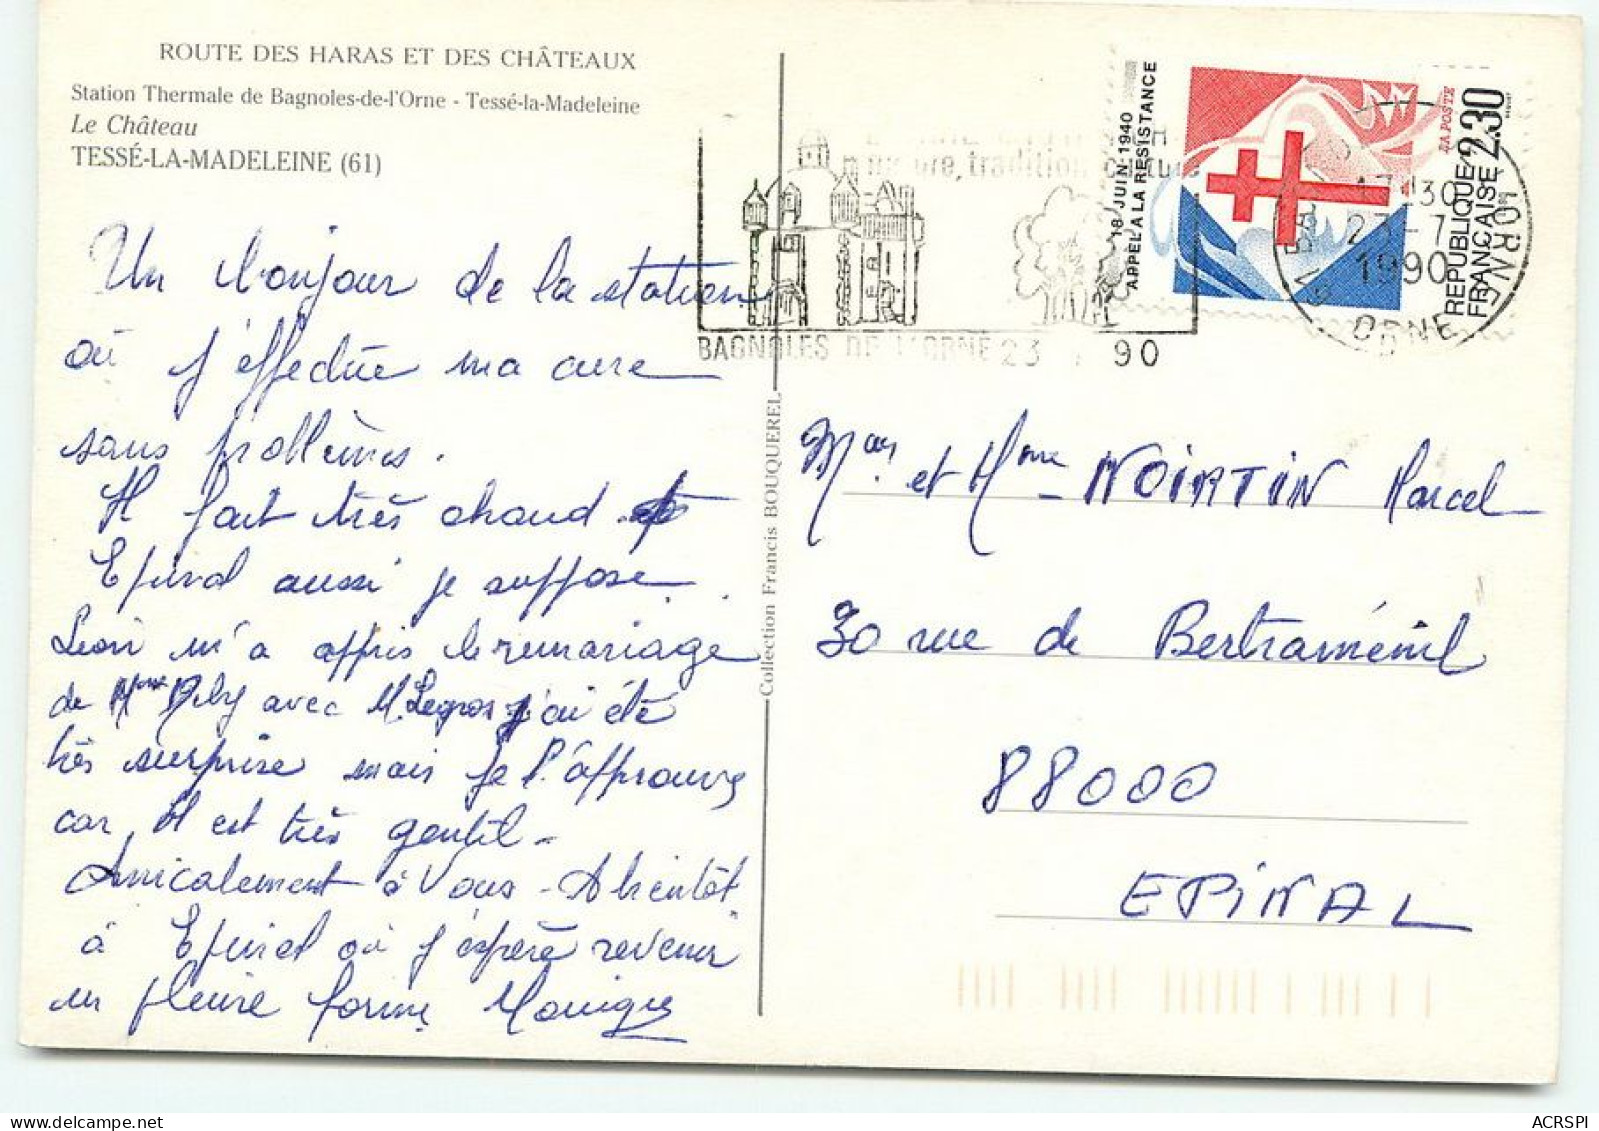 ROUTE DES HARAS ET DES CHÂTEAUX
Station Thermale de Bagnoles-de-l'Orne - Tessé-la-Madeleine
Le Château
TESSÉ-LA-MADELEINE (61)
Un bonjour de la station
où j'effectue ma cure
sans problèmes.
Il fait très chaud
Epinal aussi je suppose.
Léon m'a appris le remariage
de Mme avec M. Legros j'ai été
très surprise mais je l'approuve
car, il est très gentil -
Amicalement à Vous - A bientôt
à Epinal où j'espère revenir
en pleine forme Monique
Collection Francis BOUQUEREL
18 JUIN 1940
APPEL A LA RESISTANCE
LA POSTE
2,30
REPUBLIQUE
FRANÇAISE
17 H 30
23 - 7
1990
ORNE
BAGNOLES DE L'ORNE 23 7 90
et Mme NOIRTIN Marcel
30 rue de Bertraménil
88000
EPINAL
ACRSPI